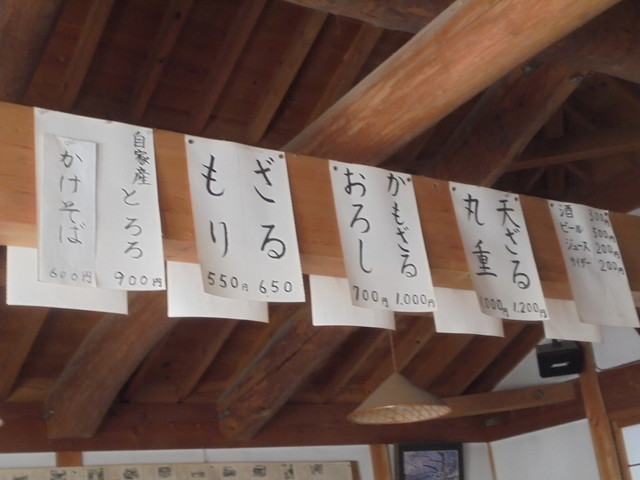 自家産とろろ
900円
かけそば
600円
ざる
650
もり
550円
かもざる
1,000円
おろし
700円
天ざる
1,200円
丸重
酒 300円
ビール 500円
ジュース 200円
サイダー 200円